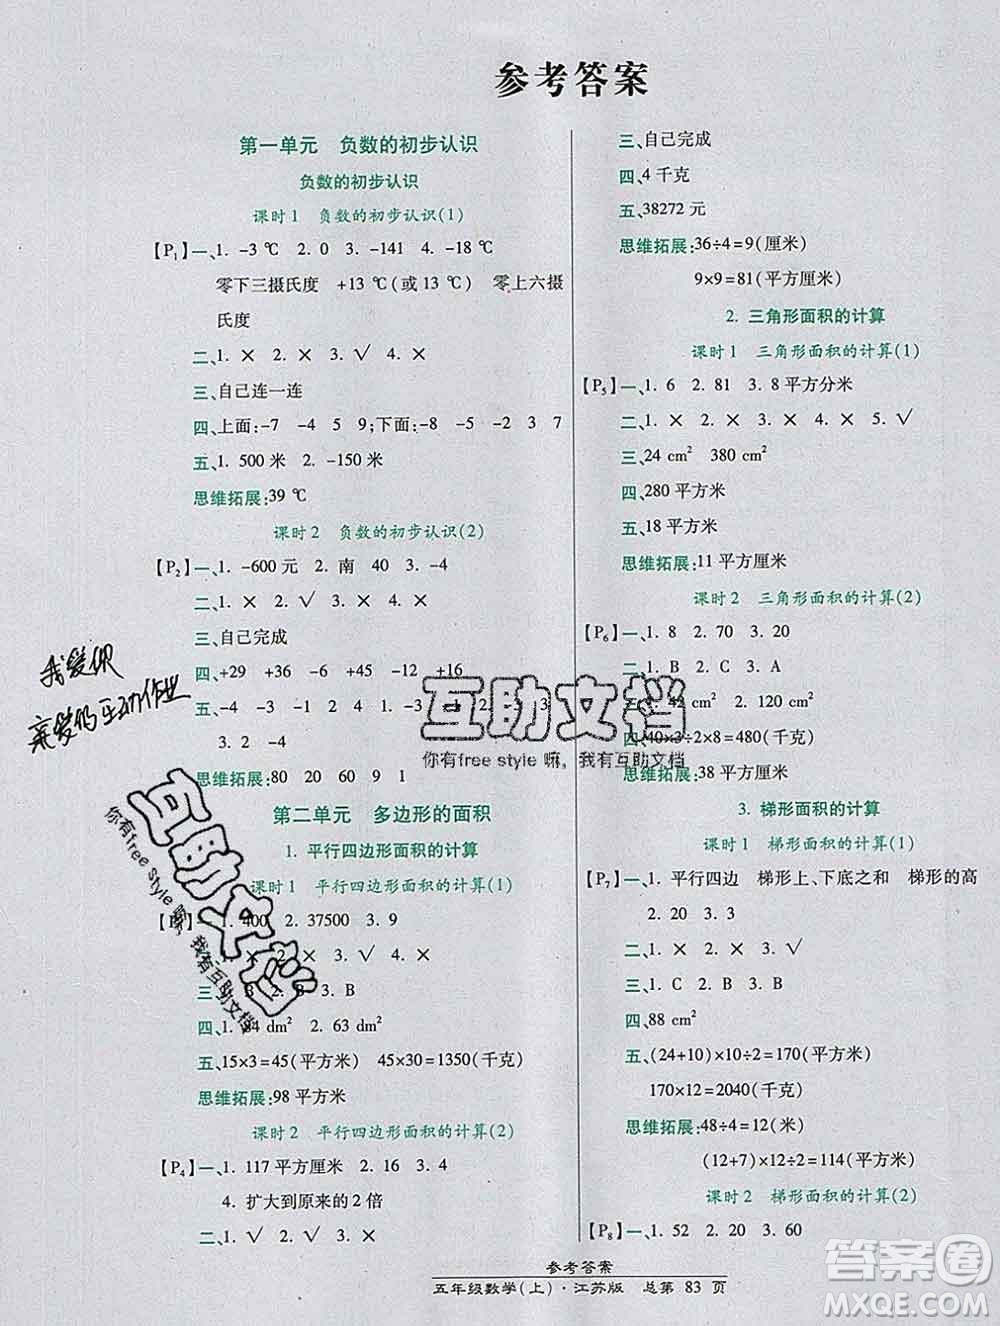 参考答案
第一单元 负数的初步认识
负数的初步认识
课时1 负数的初步认识(1)
【P₁】一、1. -3 ℃ 2. 0 3. -141 4. -18 ℃
零下三摄氏度 +13 ℃(或 13 ℃) 零上六摄
氏度
二、1. × 2. × 3. √ 4. ×
三、自己连一连
四、上面:-7 -4 5 9;下面:-8 -5 -2 3 7
五、1. 500 米 2. -150 米
思维拓展:39 ℃
课时2 负数的初步认识(2)
【P₂】一、1. -600 元 2. 南 40 3. -4
二、1. × 2. √ 3. × 4. √
三、自己完成
四、+29 +36 -6 +45 -12 +16
五、-4 -3 -1 2 4 1.
3. 2 -4
思维拓展:80 20 60 9 1
第二单元 多边形的面积
1. 平行四边形面积的计算
课时1 平行四边形面积的计算(1)
一、1. 400 2. 37500 3. 9
2. × 3. √ 4. √
三、 3. B
四、1. 84 dm² 2. 63 dm²
五、15×3=45(平方米) 45×30=1350(千克)
思维拓展:98 平方米
课时2 平行四边形面积的计算(2)
【P₄】一、1. 117 平方厘米 2. 16 3. 4
4. 扩大到原来的 2 倍
二、1. √ 2. √ 3. × 4. ×
三、自己完成
四、4 千克
五、38272 元
思维拓展:36÷4=9(厘米)
9×9=81(平方厘米)
2. 三角形面积的计算
课时1 三角形面积的计算(1)
【P₅】一、1. 6 2. 81 3. 8 平方分米
二、1. × 2. × 3. × 4. × 5. √
三、24 cm² 380 cm²
四、280 平方米
五、18 平方米
思维拓展:11 平方厘米
课时2 三角形面积的计算(2)
【P₆】一、1. 8 2. 70 3. 20
二、1. B 2. A 3. C
三、1. 42 cm² 2. 120 cm²
四、(40×3÷2×8=480(千克)
思维拓展:38 平方厘米
3. 梯形面积的计算
课时1 梯形面积的计算(1)
【P₇】一、1. 平行四边 梯形上、下底之和 梯形的高
2. 20 3. 3
二、1. × 2. × 3. √ 4. ×
三、1. C 2. C 3. B
四、88 cm²
五、(24+10)×10÷2=170(平方米)
170×12=2040(千克)
思维拓展:48÷4=12(米)
(12+7)×12÷2=114(平方米)
课时2 梯形面积的计算(2)
【P₈】一、1. 52 2. 20 3. 60
参考答案
五年级数学(上)·江苏版 总第 83 页
我爱你
亲爱的互动作业
互助文档
你有free style 嘛，我有互助文档
互助文档
你有free style 嘛，我有互助文档
答案圈
MXQE.COM